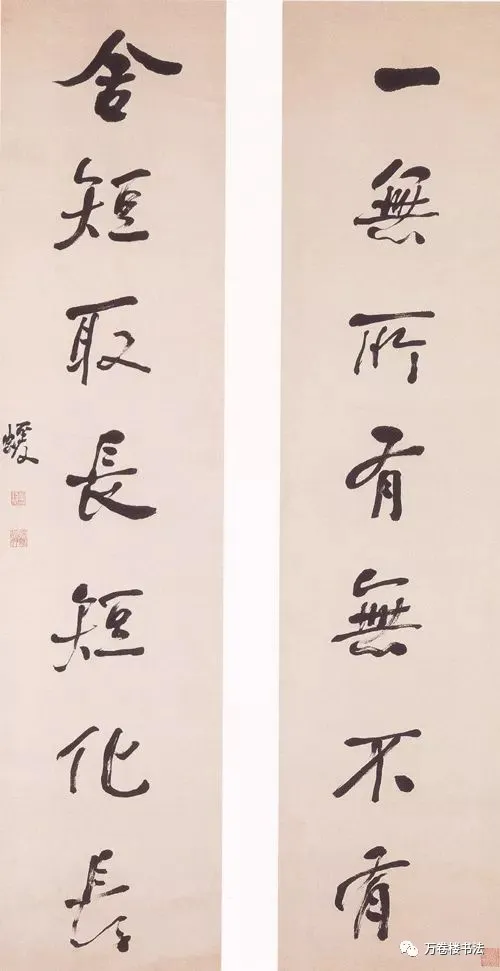 一無所有無不有
舍短取長短化長
蝯叟
万卷楼书法